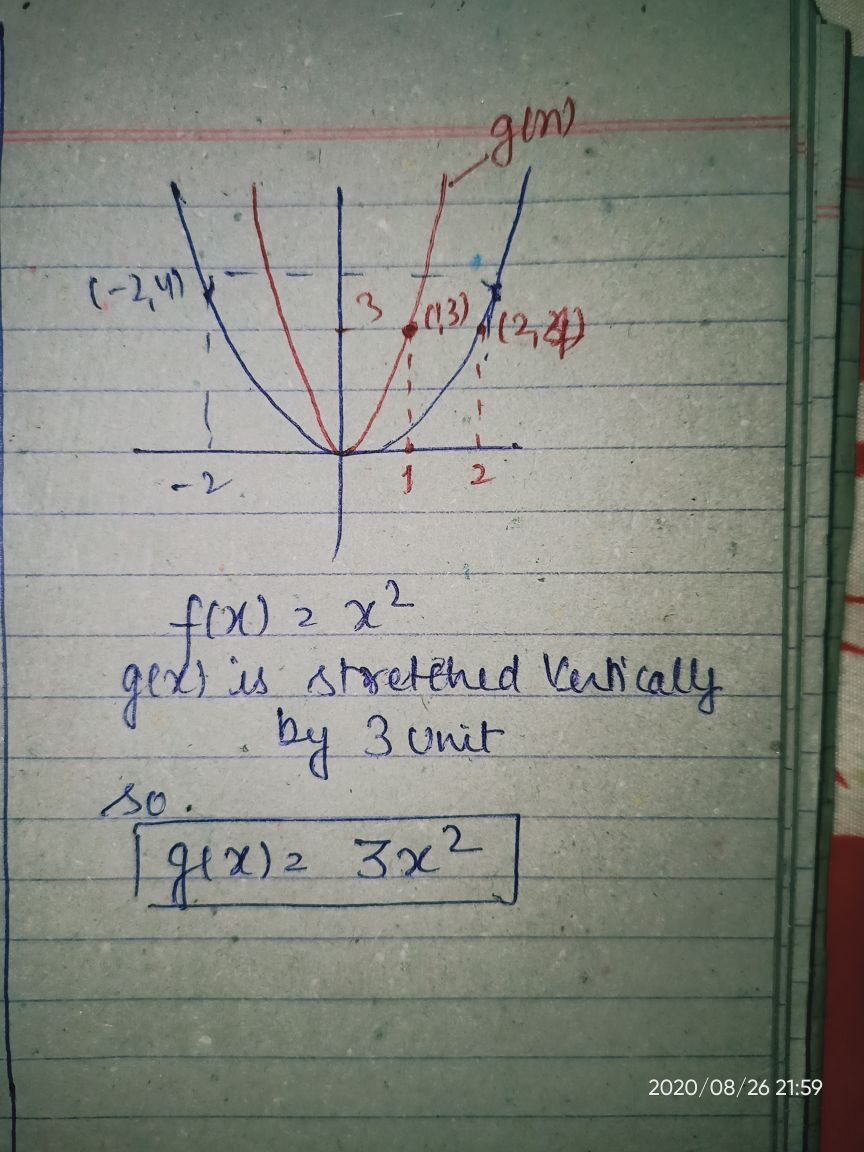 g(x)
(-2,4)
3
(1,3)
(2,4)
-2
1
2
f(x) = x²
g(x) is stretched vertically
by 3 unit
so.
g(x) = 3x²
2020/08/26 21:59